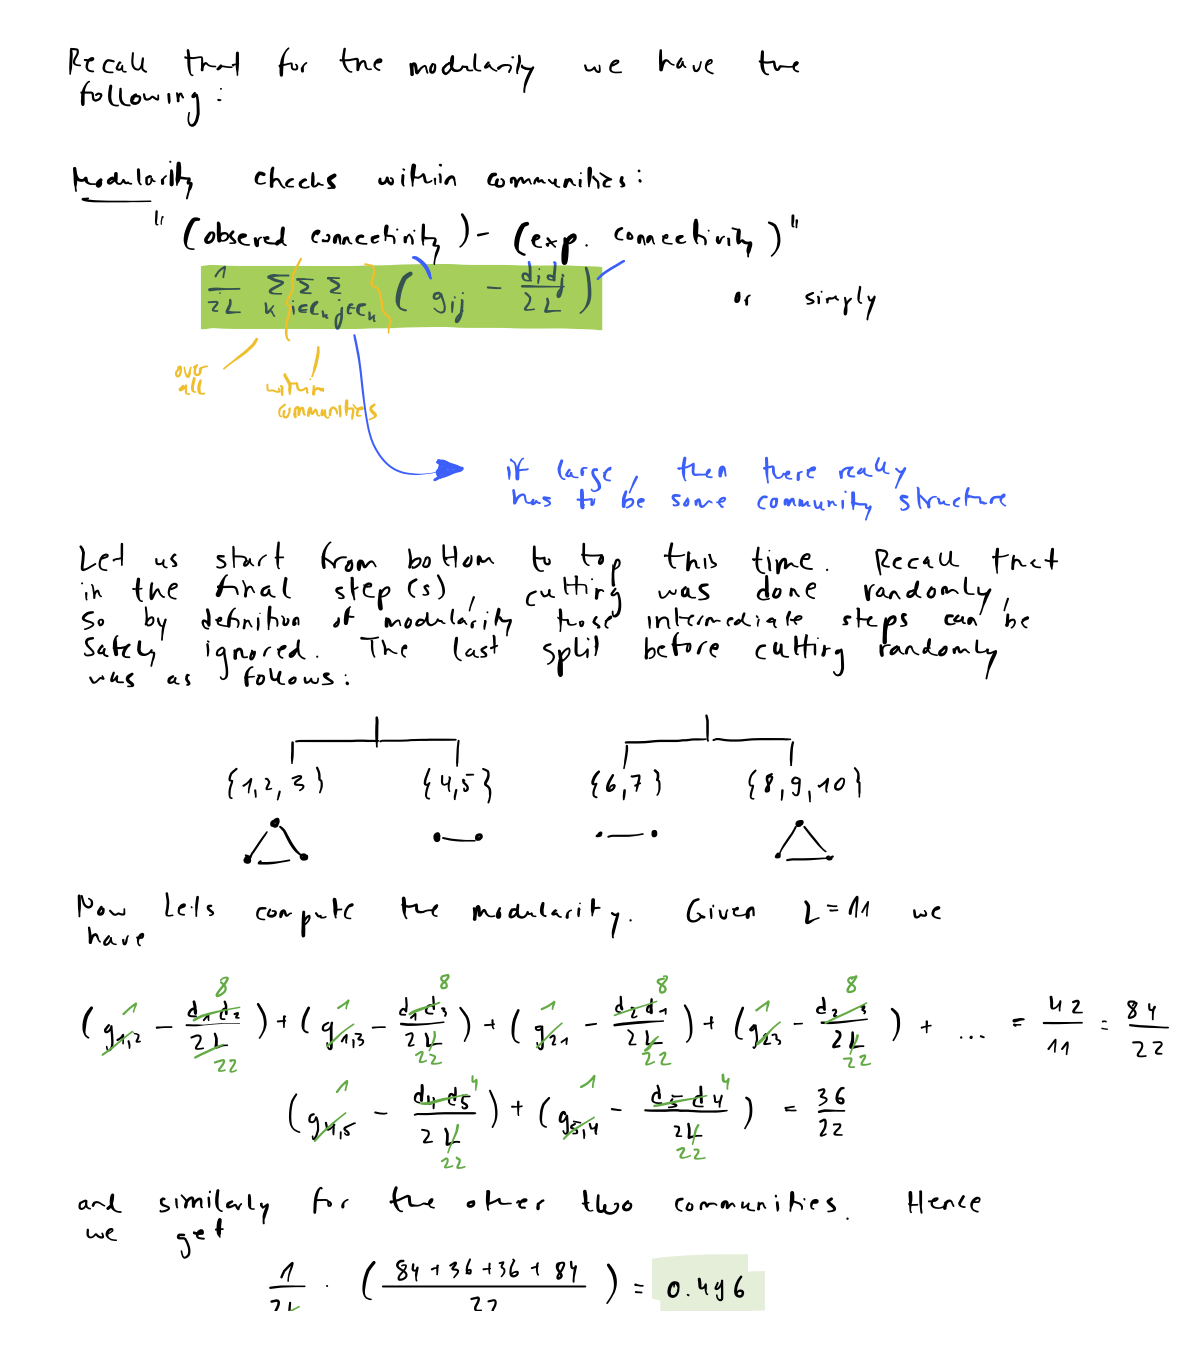 Recall that for the modularity we have the
following:
Modularity checks within communities:
"(obsered connectivity) - (exp. connectivity)"
1/2L Σ_k Σ_{i∈C_k} Σ_{j∈C_k} ( g_ij - d_i d_j / 2L ) or simply
over
all
within
communities
if large, then there really
has to be some community structure
Let us start from bottom to top this time. Recall that
in the final step(s), cutting was done randomly,
So by definition of modularity those intermediate steps can be
Safely ignored. The last split before cutting randomly
was as follows:
{1,2,3} {4,5} {6,7} {8,9,10}
Now Let's compute the modularity. Given L=11 we
have
1 8 1 8 1 8 1 8
(g_1,2 - d_1d_2/2L) + (g_1,3 - d_1d_3/2L) + (g_21 - d_2d_1/2L) + (g_23 - d_2 3/2L) + ... = 42/11 = 84/22
22 22 22 22
1 4 1 4
(g_4,5 - d_4d_5/2L) + (g_5,4 - d_5d_4/2L) = 36/22
22 22
and similarly for the other two communities. Hence
we get
1/2L · (84+36+36+84 / 22) = 0.496